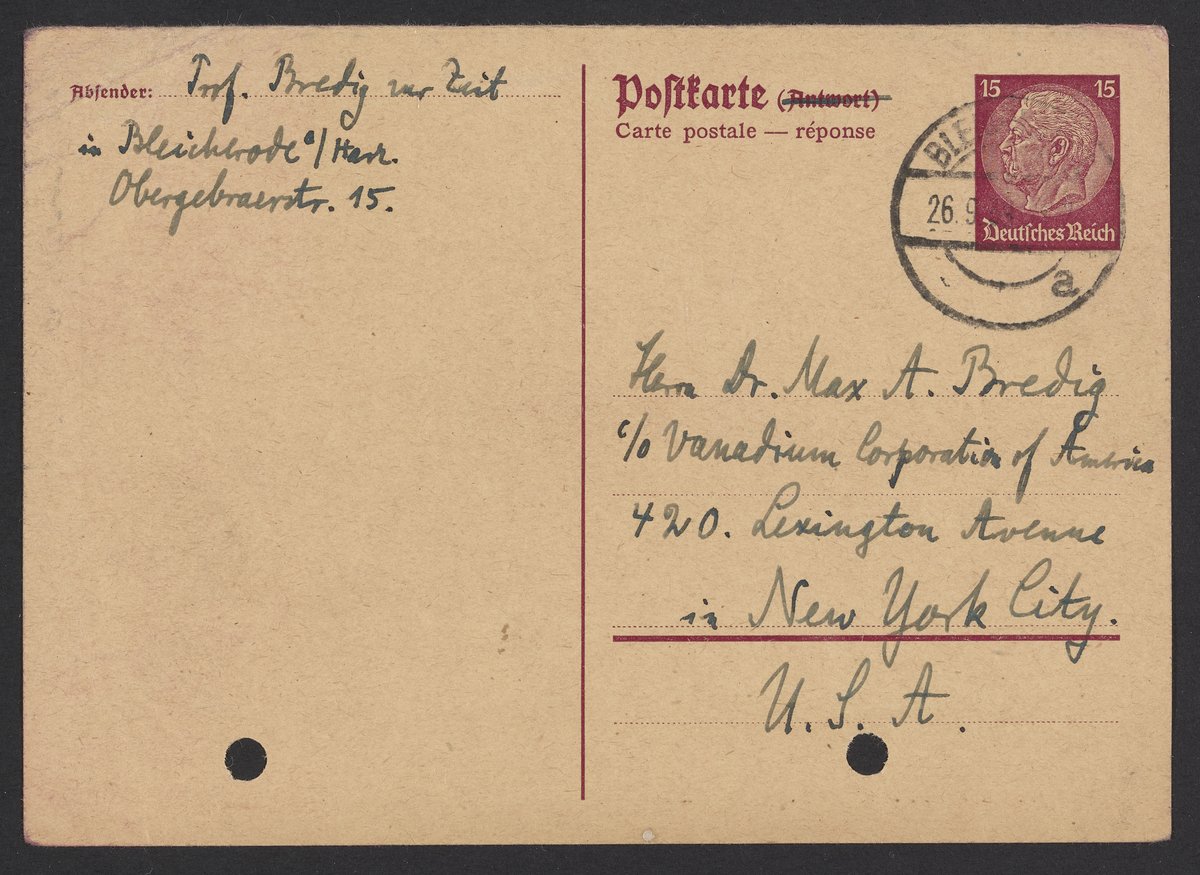 Absender: Prof. Bredig zur Zeit
in Bleicherode a/Harz.
Obergebraerstr. 15.
Poſtkarte (Antwort)
Carte postale — réponse
15 15
Deutſches Reich
BLE
26. 9.
a
Herrn Dr. Max A. Bredig
c/o Vanadium Corporation of America
420. Lexington Avenue
in New York City.
U. S. A.